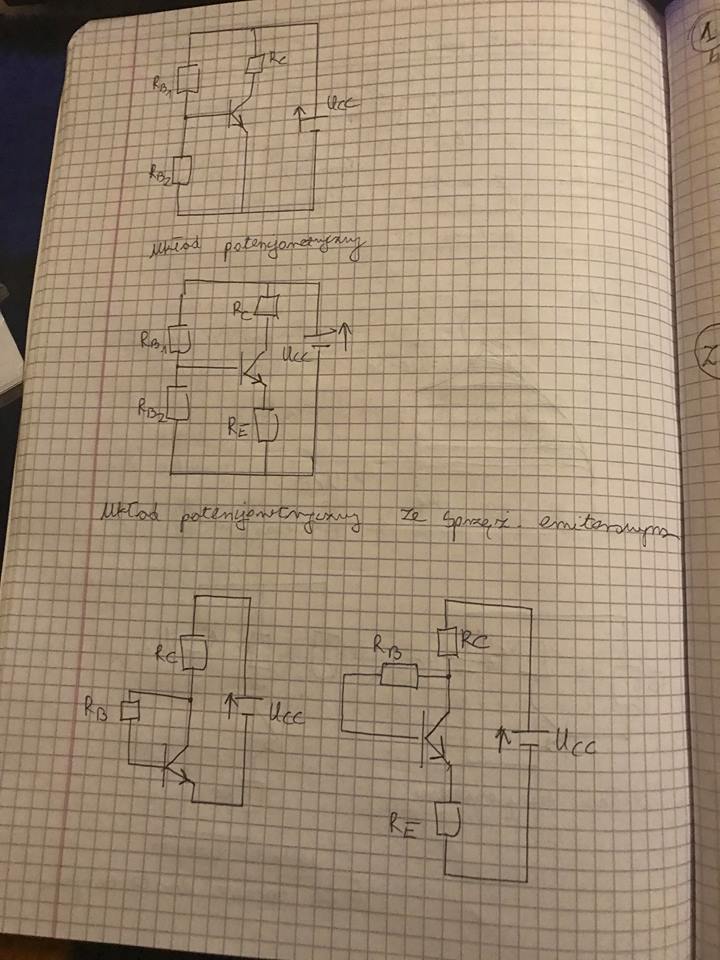 RC
RB1
UCC
RB2
Układ potencjometryczny
RC
RB1
UCC
RB2
RE
Układ potencjometryczny ze sprzęż. emiterowym
RC
RB
UCC
RB
RC
UCC
RE
1
2